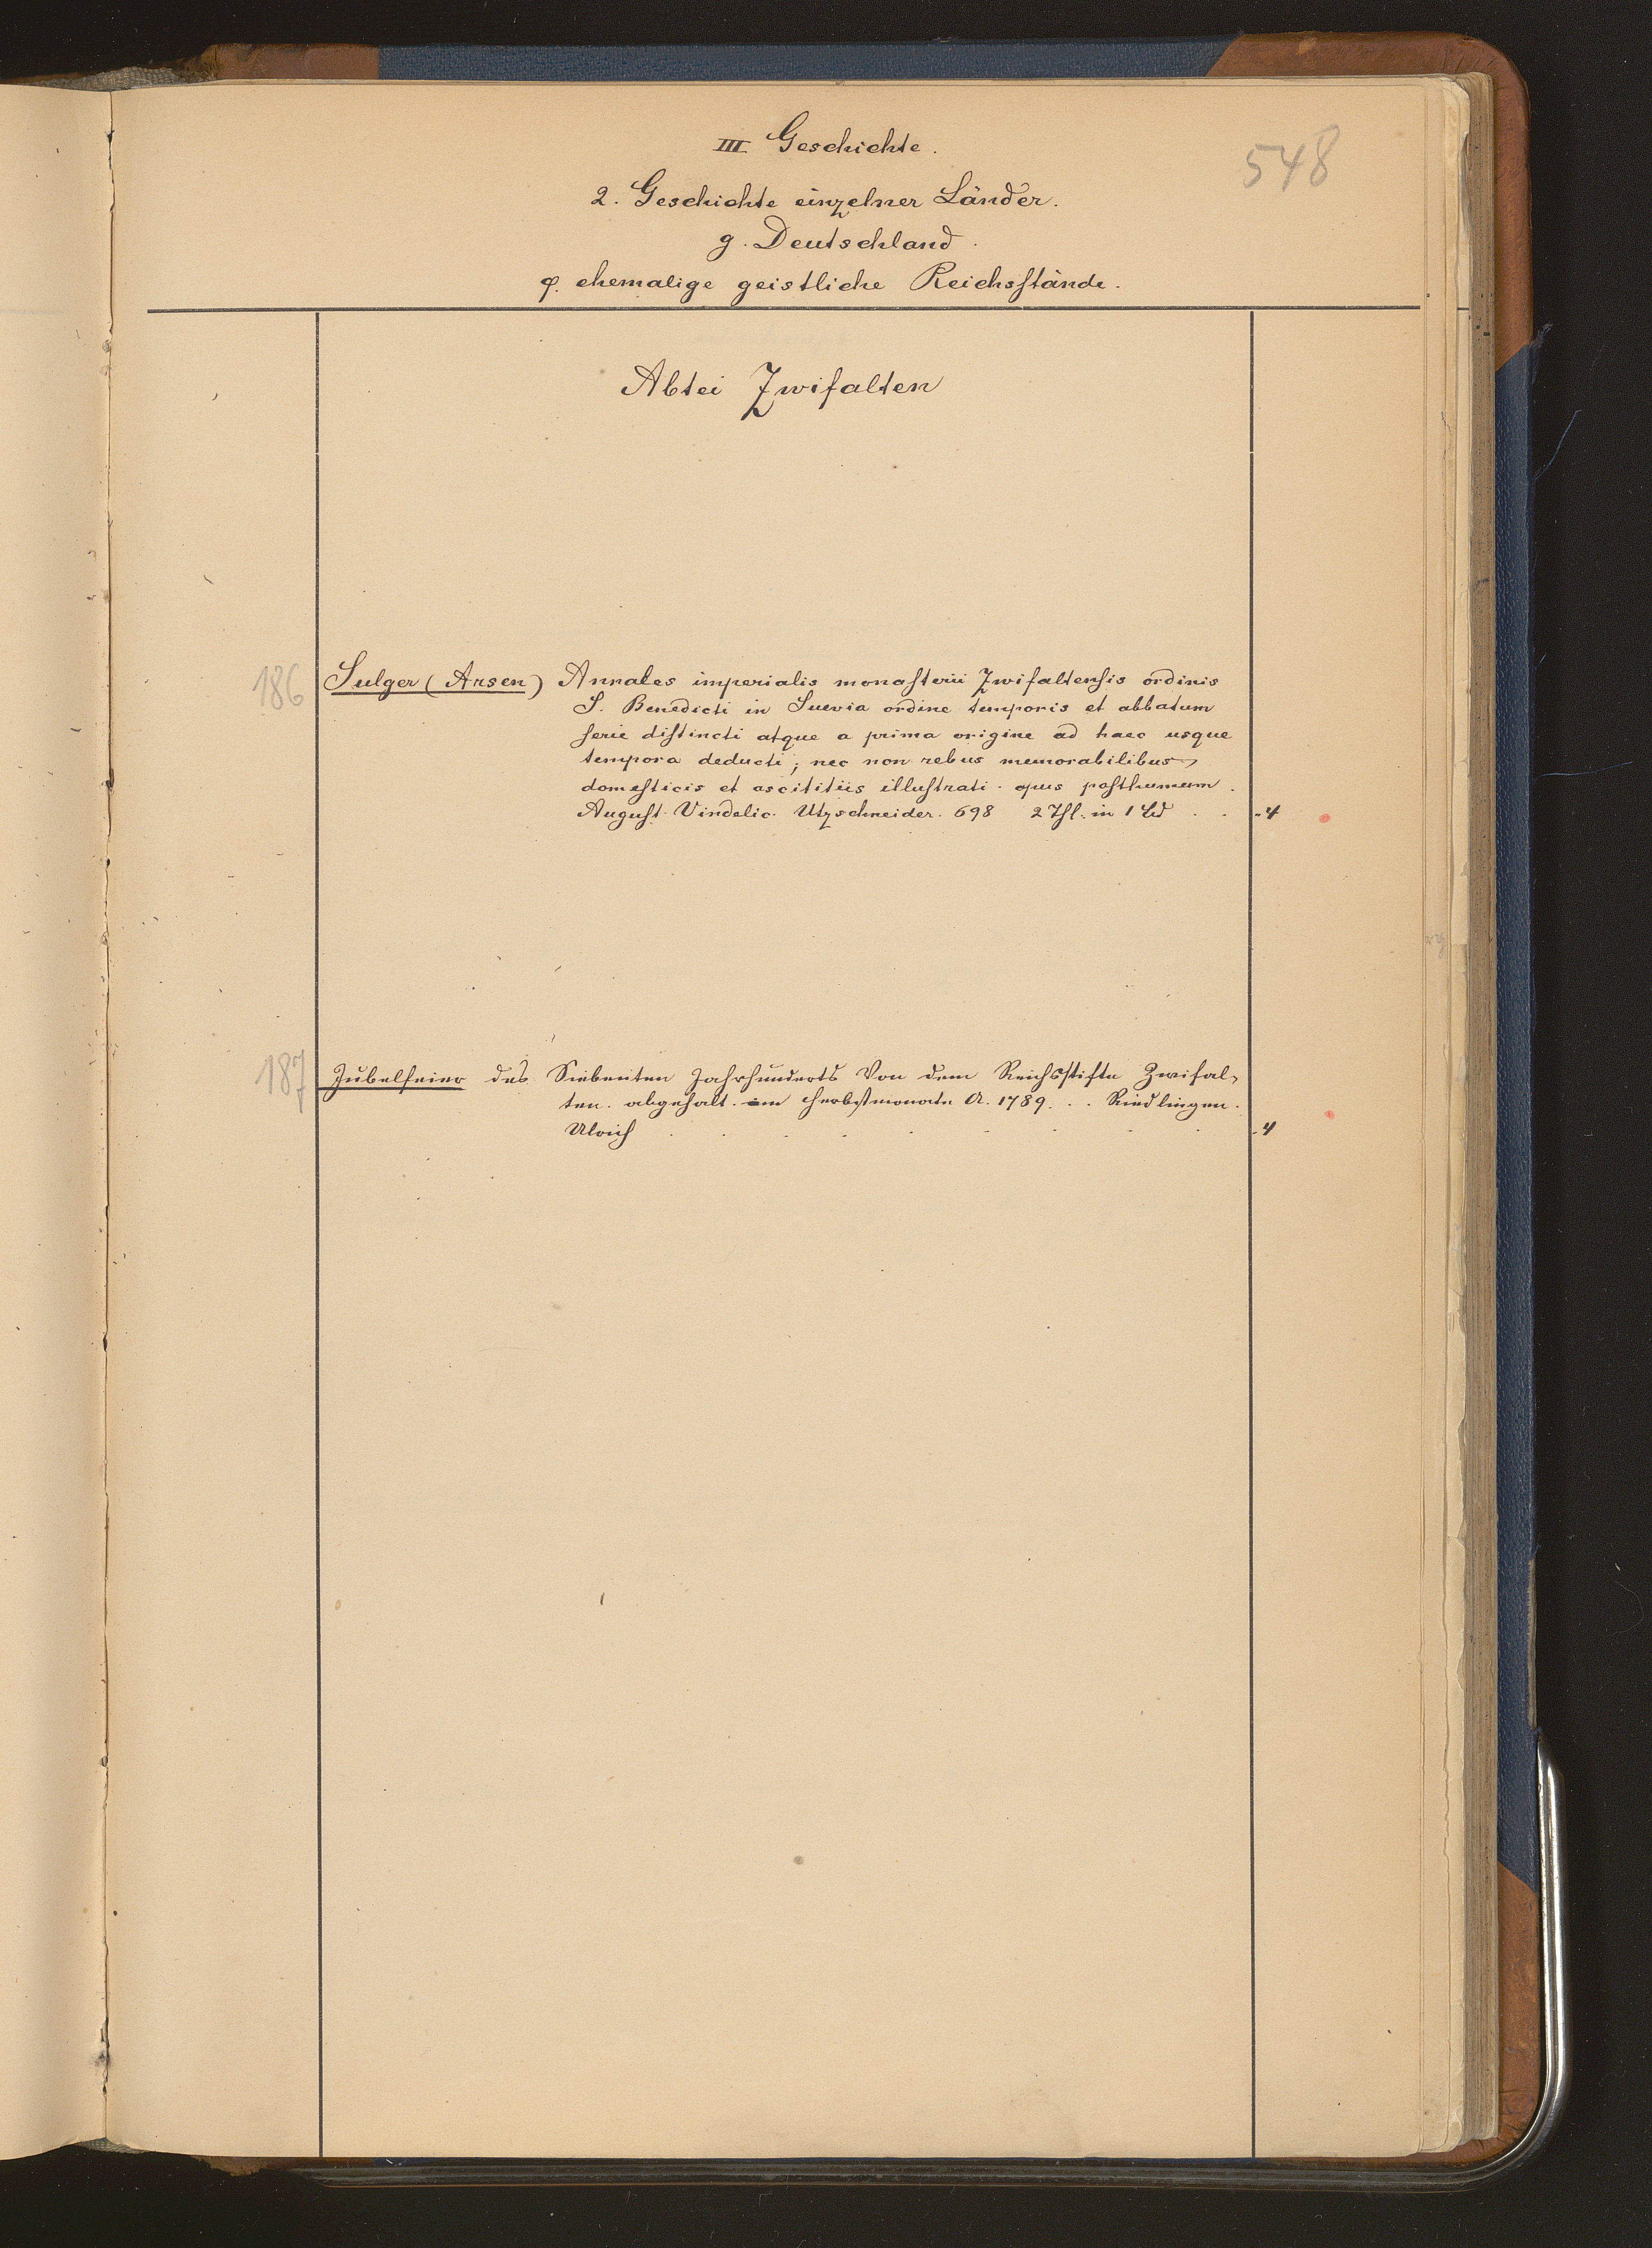 548
III Geschichte.
2. Geschichte einzelner Länder.
g. Deutschland.
φ. ehemalige geistliche Reichsstände.
Abtei Zwifalten
186 Sulger (Arsen) Annales imperialis monasterii Zwifaltensis ordinis
S. Benedicti in Suevia ordine temporis et abbatum
serie distincti atque a prima origine ad haec usque
tempora deducti; nec non rebus memorabilibus
domesticis et ascititiis illustrati. opus posthumum.
August. Vindelic. Utzschneider. 698 2 Thl. in 1 Bd . . . 4
187 Jubelfeier des Siebenten Jahrhunderts Von dem Reichsstifte Zwifal-
ten. abgehalt. im Herbstmonate A. 1789. . . Riedlingen.
Ulrich . . . . . . . . . . 4